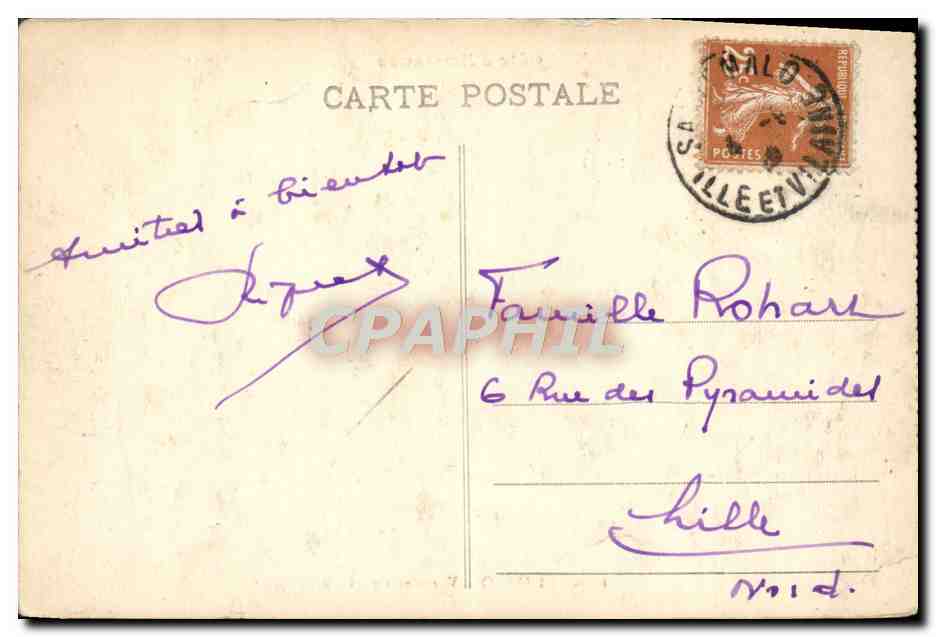 CARTE POSTALE
25c
REPUBLIQUE
POSTES
MALO
ILLE ET VILAINE
Amitiés à bientot
Famille Rohart
6 Rue des Pyramides
Lille
Nord.
CPAPHIL